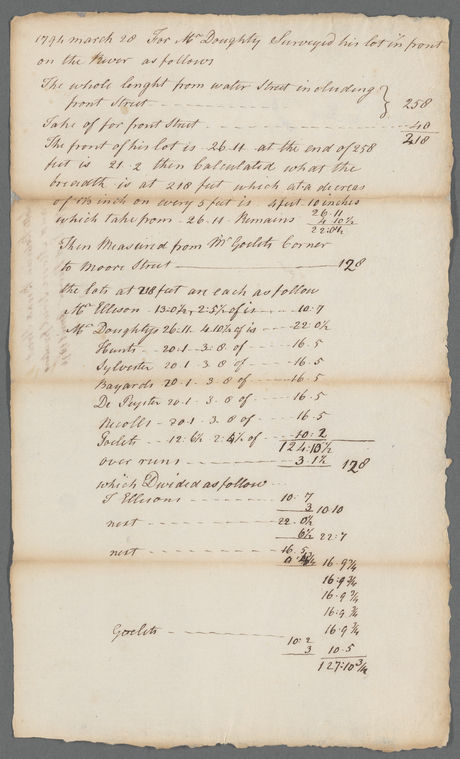 1794 march 28 For Mr Doughty Surveyed his lot in front
on the River as follows
The whole lenght from water Street including
front Street - - - 258
Take of for front Street - - - 40
218
The front of his lot is 26..11 at the end of 258
feet is 21..2 then Calculated what the
breadth is at 218 feet which at a decreas
of inch on every 5 feet is 4 feet 10 inches
which take from 26..11 Remains 26..11
4 10½
22..0½
Then Measured from Mr Goelets Corner
to Moore Street 128
the lots at 218 feet are each as follow
Mr Elleson 13..0½, 2:5½ of is 10:7
Mr Doughty 26:11 4.10½ of is 22:0½
Hunts 20..1 3..8 of 16..5
Sylvester 20..1 3..8 of 16..5
Bayards 20..1 3..8 of 16..5
De Peyster 20..1 3..8 of 16..5
Nicolls 20..1 3..8 of 16..5
Goelets 12:6½ 2:4½ of 10:2
124:10½
over runs 3..1½ 128
which Divided as follow
T Ellesons 10:7
3 10:10
next 22..0½
6½ 22:7
next 16..5
4¾ 16..9¾
16..9¾
16..9¾
16..9¾
16..9¾
Goelets 10:2
3 10..5
127:10¾